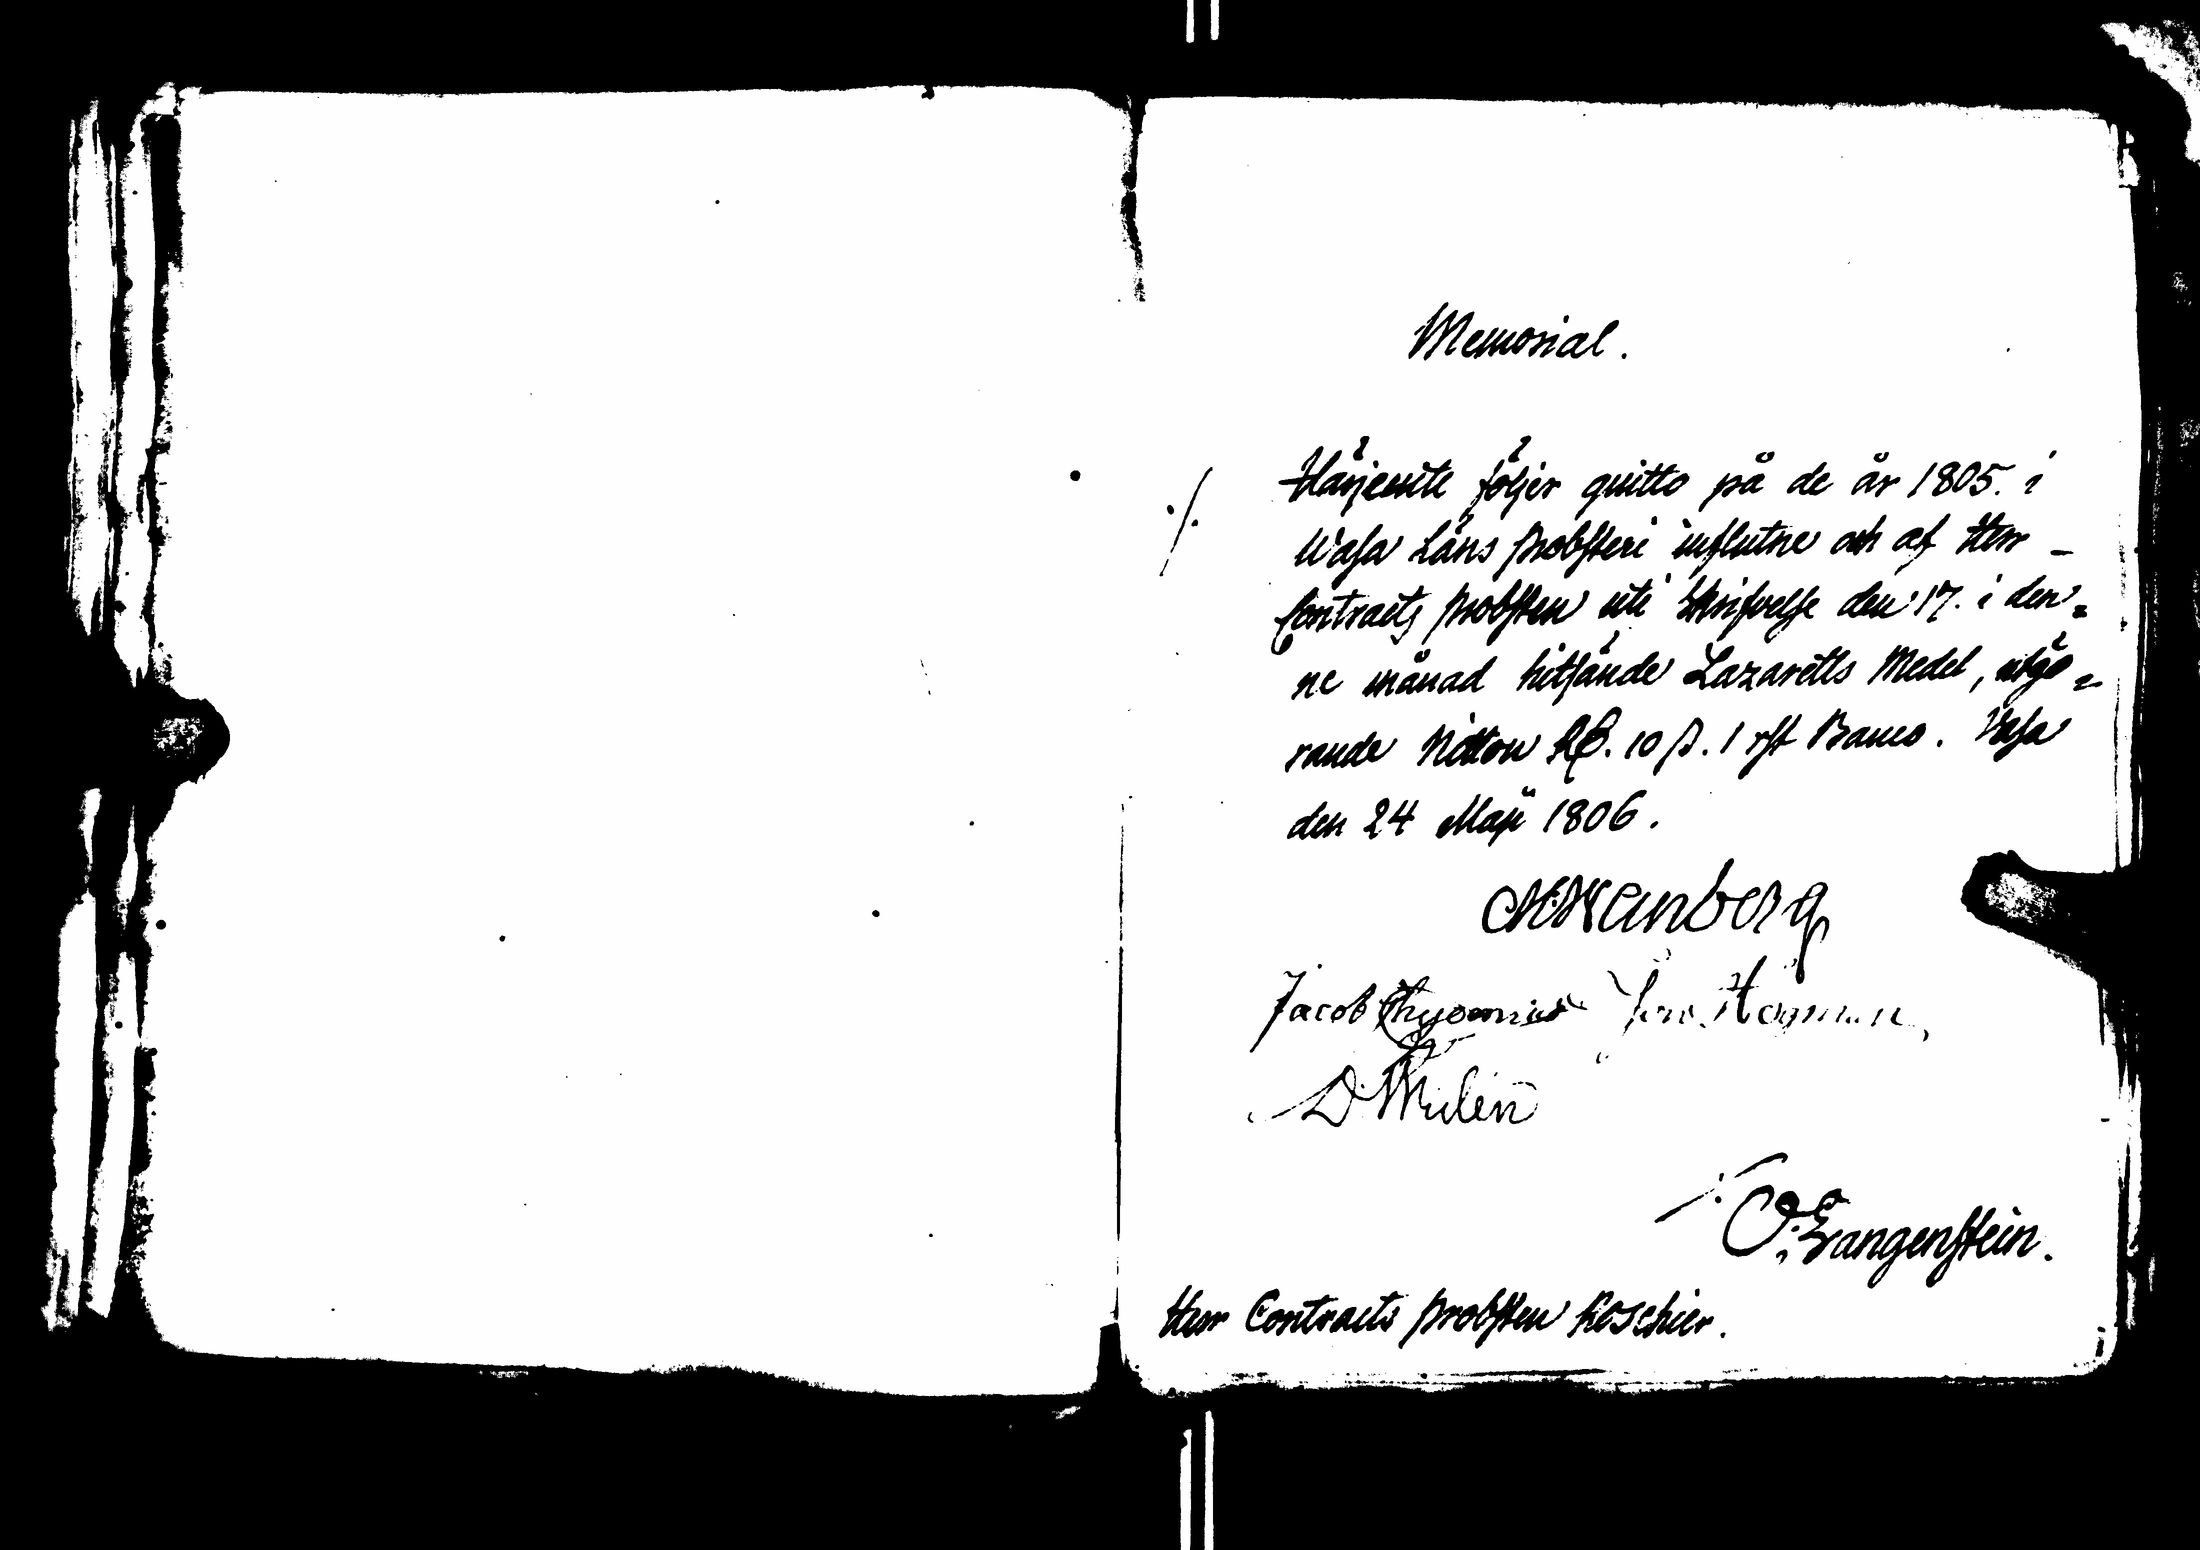 Memorial.
./. Härjemte följer quitto på de år 1805. i
Wasa Läns probsteri influtne och af Herr
Contracts probsten uti Skrifvelse den 17. i den=
ne månad hitsände Lazaretts Medel, utgö=
rande Nitton Rd. 10 s. 1 rst Banco. Vasa
den 24 Maji 1806.
Jacob
O. Langenstein.
Herr Contracts probsten Roschier.